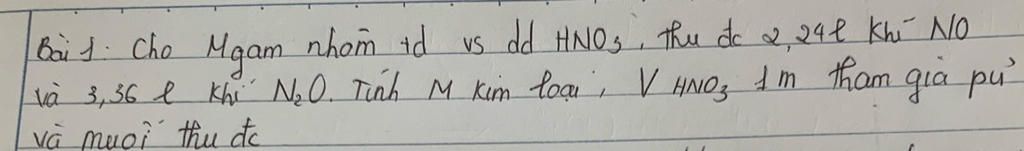 Bài 1: Cho Mgam nhôm td vs dd HNO3, thu đc 2,24l khí NO
và 3,36 l khí N2O. Tính M kim loại, V HNO3 1m tham gia pứ
và muối thu đc